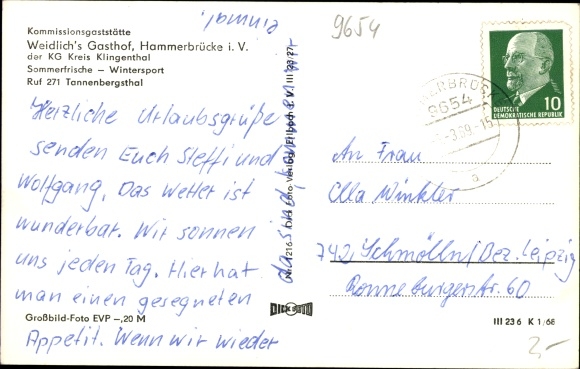 Kommissionsgaststätte
Weidlich's Gasthof, Hammerbrücke i. V.
der KG Kreis Klingenthal
Sommerfrische – Wintersport
Ruf 271 Tannenbergsthal
Herzliche Urlaubsgrüße
senden Euch Steffi und
Wolfgang. Das Wetter ist
wunderbar. Wir sonnen
uns jeden Tag. Hier hat
man einen gesegneten
Appetit. Wenn wir wieder
da sind, kommen wir
einmal.
Großbild-Foto EVP –,20 M
Foto-Verlag Erlbach i. V. III 23 27
DICK FOTO
9654
9654
10
DEUTSCHE
DEMOKRATISCHE REPUBLIK
An Frau
Ella Winkler
742 Schmölln/Bez. Leipzig
Ronneburgerstr. 60
III 23 6 K 1/68
3-